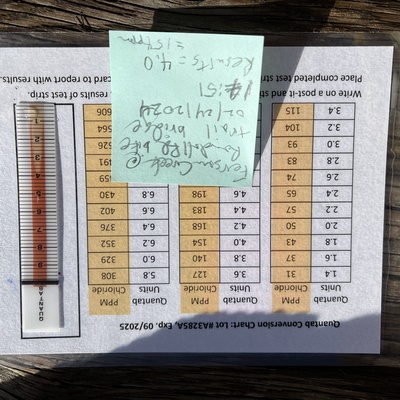 Quantab Conversion Chart: Lot #A3285A, Exp. 09/2025
Quantab PPM Quantab PPM Quantab PPM
Units Chloride Units Chloride Units Chloride
1.4 31 3.6 127 5.8 308
1.6 37 3.8 140 6.0 329
1.8 43 4.0 154 6.2 352
2.0 50 4.2 168 6.4 376
2.2 57 4.4 183 6.6 402
2.4 65 4.6 198 6.8 430
2.6 74
2.8 83
3.0 93
3.2 104
3.4 115 606
Ferson Creek @
Randall Rd bike
trail bridge
02/24/2024
:51
Results = 4.0
= 154 ppm
Write on a post-it and results of test strip.
Place completed test card to report with results.
QUANTAB
9
8
7
6
5
4
3
2
1